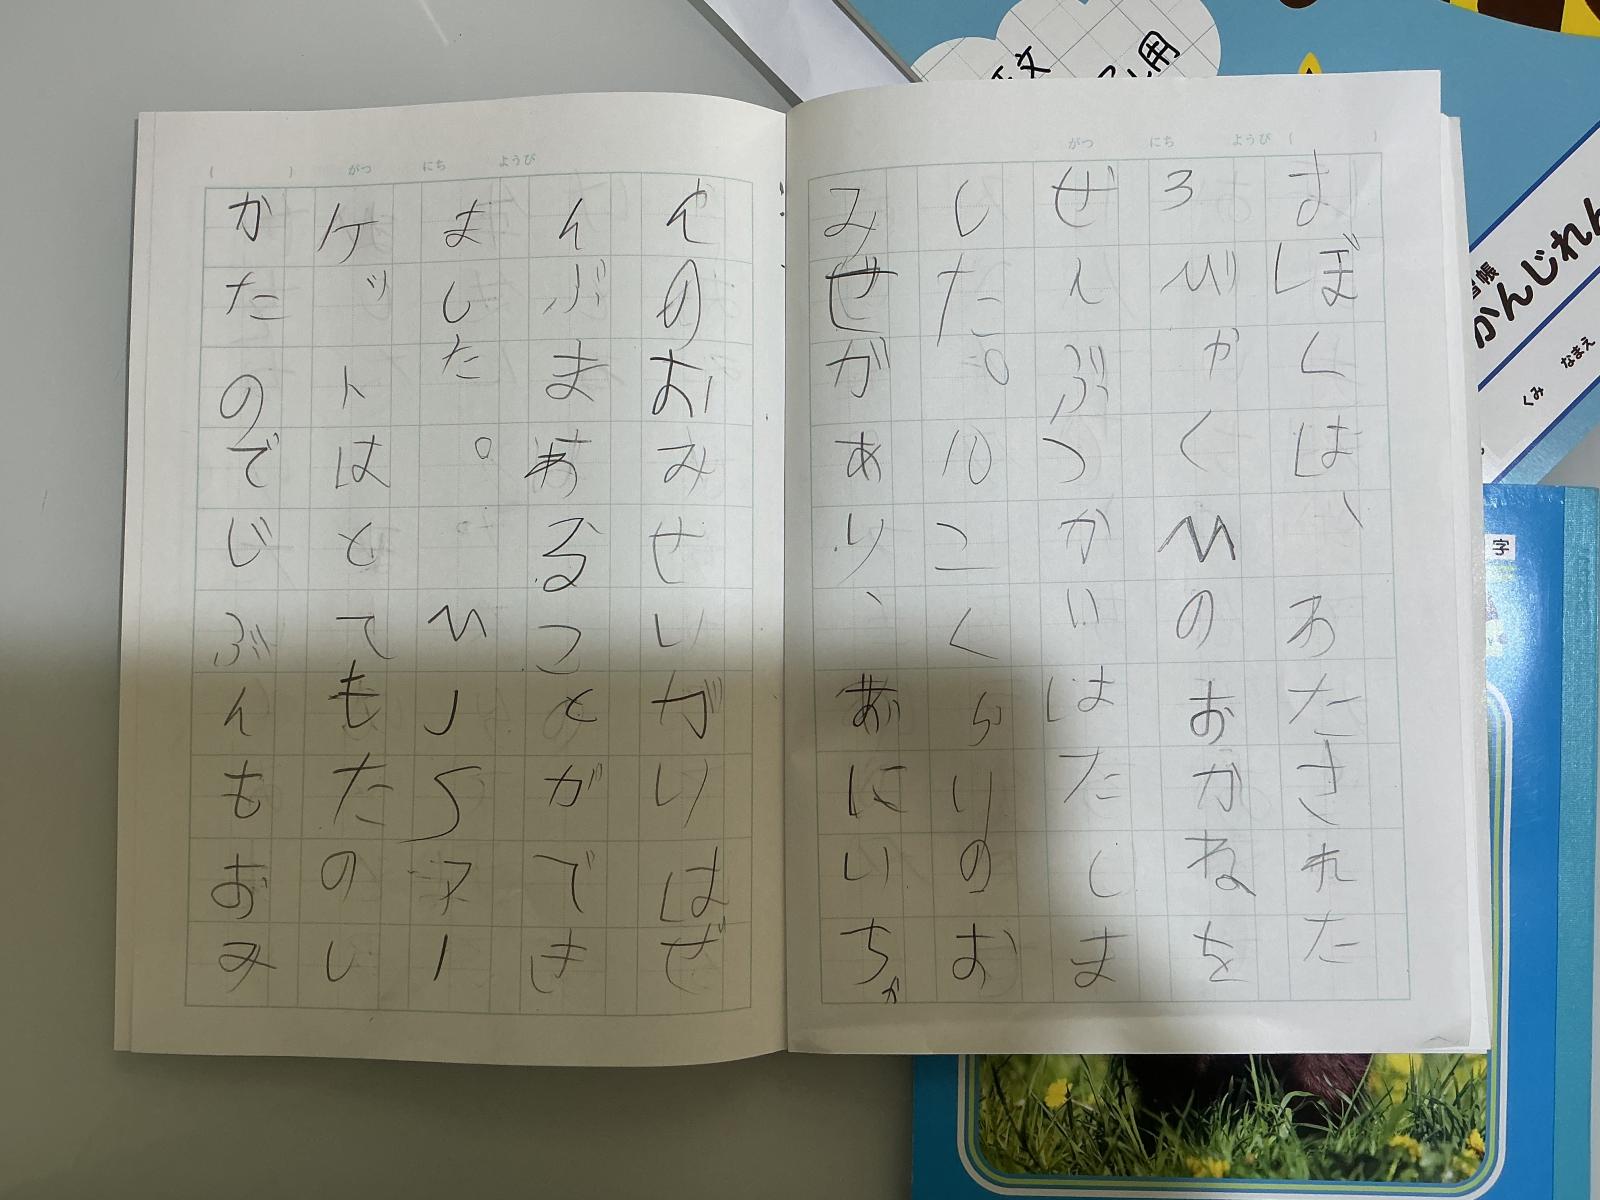 がつ にち ようび ( )
ま ぼくは、わたされた
3びやくMのおかねを
ぜんぶつかいはたしま
した。10こくらりのお
みせがあり、おにいちゃ
( ) がつ にち ようび
んのおみせいがいはぜ
んぶまわることができ
ました。MJSター
ゲットはとてもたのし
かたのでじぶんもおみ
文
用
習帳
かんじれん
くみ なまえ
字